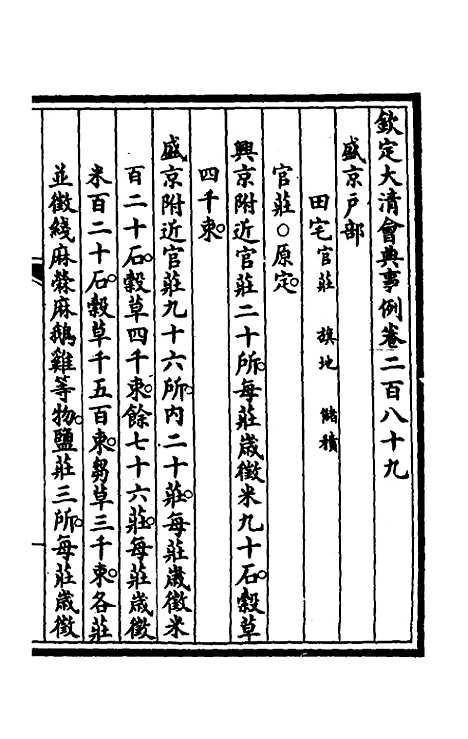 欽定大清會典事例卷二百八十九
盛京戶部
田宅官莊 旗地 儲積
官莊○原定。
興京附近官莊二十所。每莊歲徵米九十石。穀草
四千束。
盛京附近官莊九十六所。內二十莊。每莊歲徵米
百二十石。穀草四千束。餘七十六莊。每莊歲徵
米百二十石。穀草千五百束。芻草三千束。各莊
並徵綫麻檾麻鵝雞等物。鹽莊三所。每莊歲徵